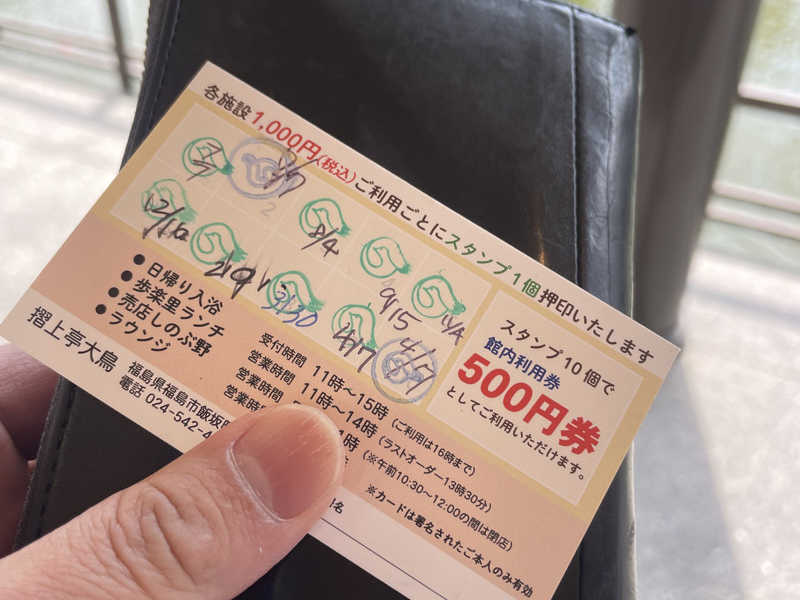 各施設1,000円(税込)ご利用ごとにスタンプ1個押印いたします
2
8/4
9/15
12/12
2/9
3/30
4/17
スタンプ10個で
館内利用券
500円券
としてご利用いただけます。
●日帰り入浴 受付時間 11時～15時(ご利用は16時まで)
●歩楽里ランチ 営業時間 11時～14時(ラストオーダー13時30分)
●売店しのぶ野 営業時間 (※午前10:30～12:00の間は閉店)
●ラウンジ 営業時
※カードは署名されたご本人のみ有効
摺上亭大鳥 福島県福島市飯坂町
電話 024-542-4
名